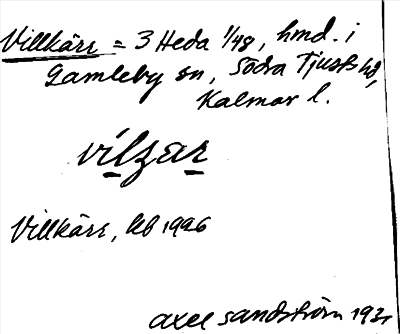 Villkärr = 3 Heda 1/48, hmd. i
Gamleby sn, Södra Tjusts hd,
Kalmar l.
vilzar
Villkärr, kb 1996
Axel Sandström 1931